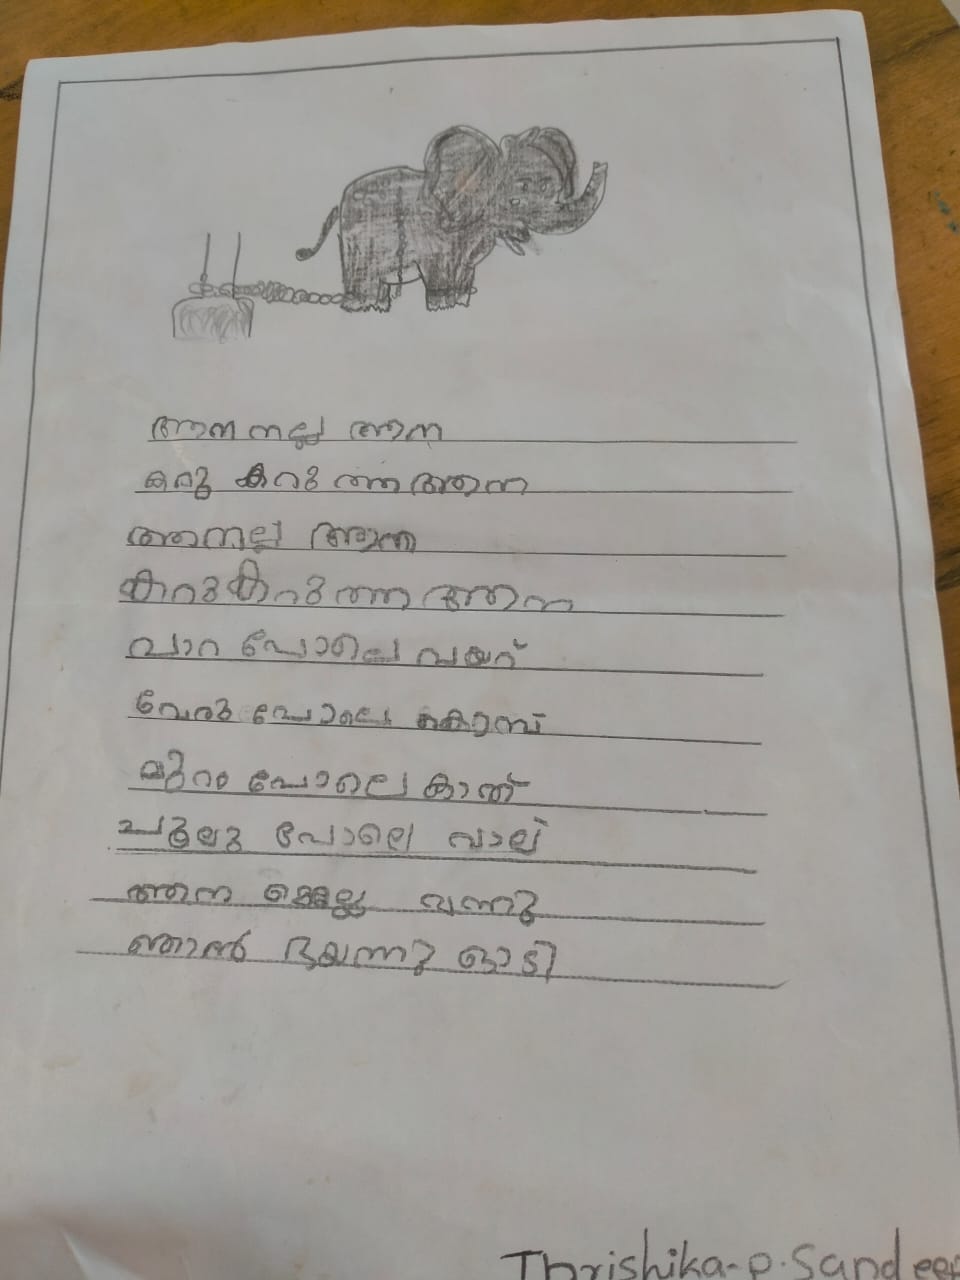 ആന നല്ല ആന
കറു കറു ത്ത ആന
ആനനല്ല ആന
കറുകറു ത്ത ആന
പാറ പോലെ വയറ്
വേരു പോലെ കൊമ്പ്
മുറം പോലെ കാത്
ചൂലു പോലെ വാല്
ആന മെല്ലെ വന്നു
ഞാൻ ഭയന്നു ഓടി
Thrishika-P.Sandeep